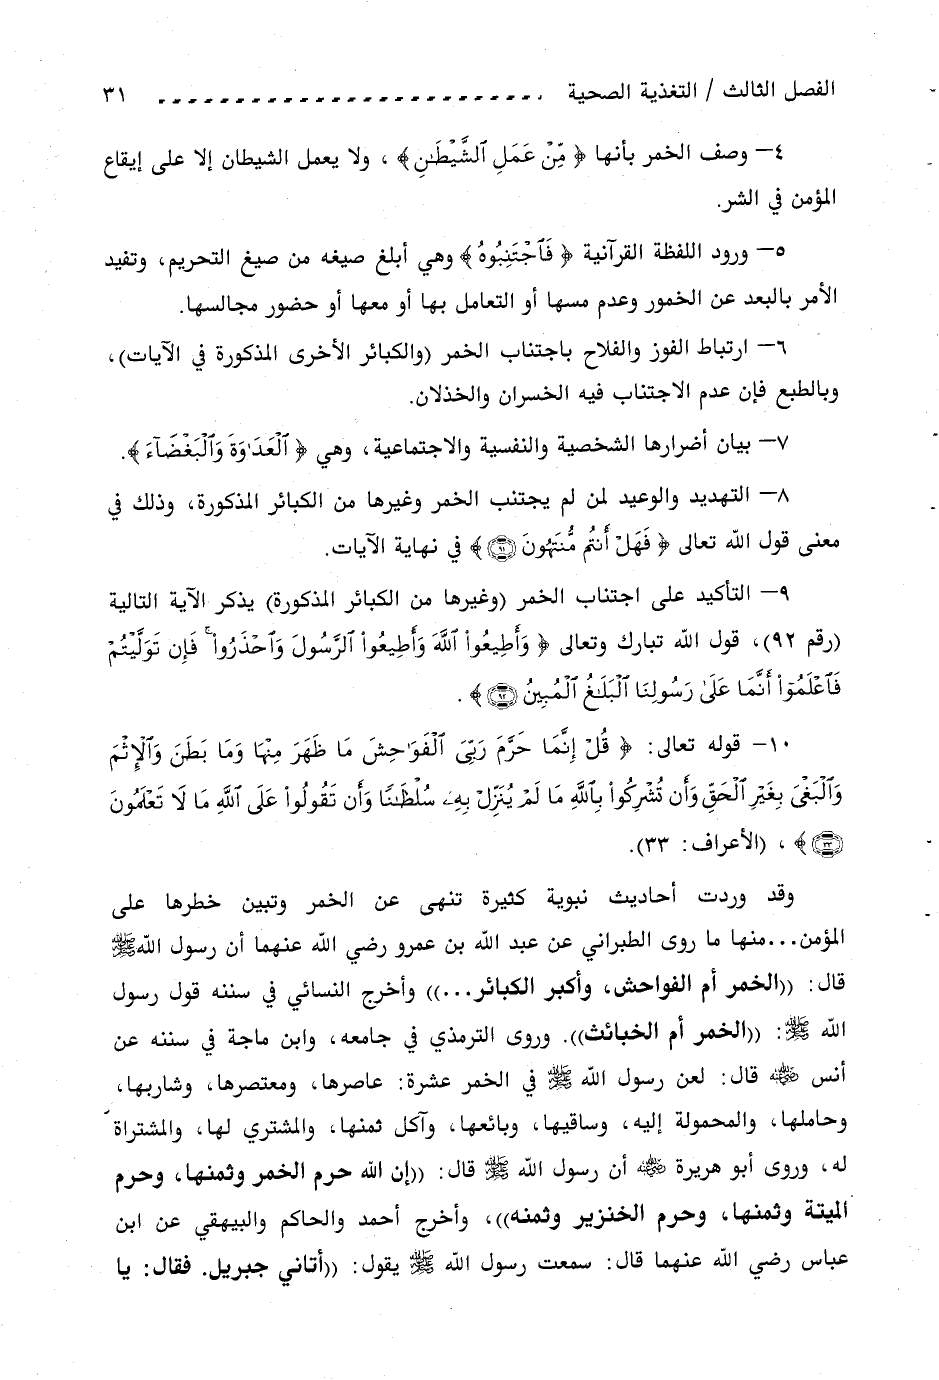 الفصل الثالث / التغذية الصحية ........................ ٣١
٤– وصف الخمر بأنها ﴿ مِّنْ عَمَلِ ٱلشَّيْطَٰنِ ﴾ ، ولا يعمل الشيطان إلا على إيقاع
المؤمن في الشر.
٥– ورود اللفظة القرآنية ﴿ فَٱجْتَنِبُوهُ ﴾ وهي أبلغ صيغه من صيغ التحريم، وتفيد
الأمر بالبعد عن الخمور وعدم مسها أو التعامل بها أو معها أو حضور مجالسها.
٦– ارتباط الفوز والفلاح باجتناب الخمر (والكبائر الأخرى المذكورة في الآيات)،
وبالطبع فإن عدم الاجتناب فيه الخسران والخذلان.
٧– بيان أضرارها الشخصية والنفسية والاجتماعية، وهي ﴿ ٱلْعَدَٰوَةَ وَٱلْبَغْضَآءَ ﴾.
٨– التهديد والوعيد لمن لم يجتنب الخمر وغيرها من الكبائر المذكورة، وذلك في
معنى قول الله تعالى ﴿ فَهَلْ أَنتُم مُّنتَهُونَ ٩١ ﴾ في نهاية الآيات.
٩– التأكيد على اجتناب الخمر (وغيرها من الكبائر المذكورة) يذكر الآية التالية
(رقم ٩٢)، قول الله تبارك وتعالى ﴿ وَأَطِيعُوا۟ ٱللَّهَ وَأَطِيعُوا۟ ٱلرَّسُولَ وَٱحْذَرُوا۟ ۚ فَإِن تَوَلَّيْتُمْ
فَٱعْلَمُوٓا۟ أَنَّمَا عَلَىٰ رَسُولِنَا ٱلْبَلَٰغُ ٱلْمُبِينُ ٩٢ ﴾ .
١٠– قوله تعالى: ﴿ قُلْ إِنَّمَا حَرَّمَ رَبِّىَ ٱلْفَوَٰحِشَ مَا ظَهَرَ مِنْهَا وَمَا بَطَنَ وَٱلْإِثْمَ
وَٱلْبَغْىَ بِغَيْرِ ٱلْحَقِّ وَأَن تُشْرِكُوا۟ بِٱللَّهِ مَا لَمْ يُنَزِّلْ بِهِۦ سُلْطَٰنًا وَأَن تَقُولُوا۟ عَلَى ٱللَّهِ مَا لَا تَعْلَمُونَ
٣٣ ﴾ ، (الأعراف: ٣٣).
وقد وردت أحاديث نبوية كثيرة تنهى عن الخمر وتبين خطرها على
المؤمن...منها ما روى الطبراني عن عبد الله بن عمرو رضي الله عنهما أن رسول الله ﷺ
قال: ((الخمر أم الفواحش، وأكبر الكبائر...)) وأخرج النسائي في سننه قول رسول
الله ﷺ: ((الخمر أم الخبائث)). وروى الترمذي في جامعه، وابن ماجة في سننه عن
أنس ﵁ قال: لعن رسول الله ﷺ في الخمر عشرة: عاصرها، ومعتصرها، وشاربها،
وحاملها، والمحمولة إليه، وساقيها، وبائعها، وآكل ثمنها، والمشتري لها، والمشتراة
له، وروى أبو هريرة ﵁ أن رسول الله ﷺ قال: ((إن الله حرم الخمر وثمنها، وحرم
الميتة وثمنها، وحرم الخنزير وثمنه))، وأخرج أحمد والحاكم والبيهقي عن ابن
عباس رضي الله عنهما قال: سمعت رسول الله ﷺ يقول: ((أتاني جبريل. فقال: يا